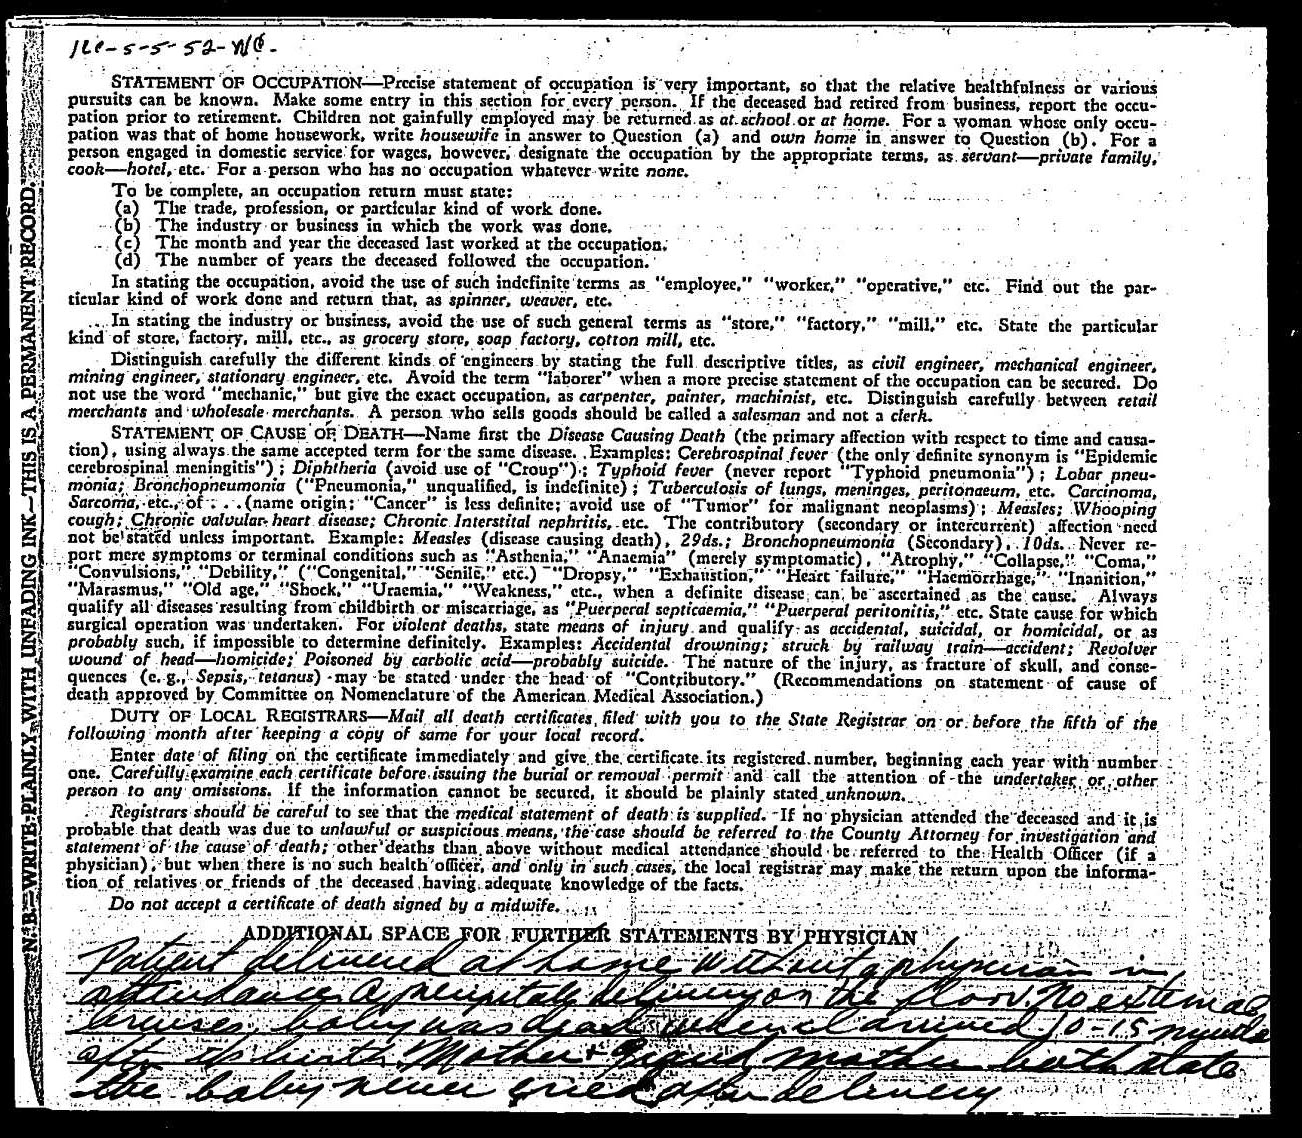 STATEMENT OF OCCUPATION—Precise statement of occupation is very important, so that the relative healthfulness or various
pursuits can be known. Make some entry in this section for every person. If the deceased had retired from business, report the occu-
pation prior to retirement. Children not gainfully employed may be returned as at school or at home. For a woman whose only occu-
pation was that of home housework, write housewife in answer to Question (a) and own home in answer to Question (b). For a
person engaged in domestic service for wages, however, designate the occupation by the appropriate terms, as servant—private family,
cook—hotel, etc. For a person who has no occupation whatever write none.
To be complete, an occupation return must state:
(a) The trade, profession, or particular kind of work done.
(b) The industry or business in which the work was done.
(c) The month and year the deceased last worked at the occupation.
(d) The number of years the deceased followed the occupation.
In stating the occupation, avoid the use of such indefinite terms as "employee," "worker," "operative," etc. Find out the par-
ticular kind of work done and return that, as spinner, weaver, etc.
In stating the industry or business, avoid the use of such general terms as "store," "factory," "mill," etc. State the particular
kind of store, factory, mill, etc., as grocery store, soap factory, cotton mill, etc.
Distinguish carefully the different kinds of engineers by stating the full descriptive titles, as civil engineer, mechanical engineer,
mining engineer, stationary engineer, etc. Avoid the term "laborer" when a more precise statement of the occupation can be secured. Do
not use the word "mechanic," but give the exact occupation, as carpenter, painter, machinist, etc. Distinguish carefully between retail
merchants and wholesale merchants. A person who sells goods should be called a salesman and not a clerk.
STATEMENT OF CAUSE OF DEATH—Name first the Disease Causing Death (the primary affection with respect to time and causa-
tion), using always the same accepted term for the same disease. Examples: Cerebrospinal fever (the only definite synonym is "Epidemic
cerebrospinal meningitis"); Diphtheria (avoid use of "Croup"); Typhoid fever (never report "Typhoid pneumonia"); Lobar pneu-
monia; Bronchopneumonia ("Pneumonia," unqualified, is indefinite); Tuberculosis of lungs, meninges, peritonaeum, etc. Carcinoma,
Sarcoma, etc., of . . . (name origin; "Cancer" is less definite; avoid use of "Tumor" for malignant neoplasms); Measles; Whooping
cough; Chronic valvular heart disease; Chronic Interstital nephritis, etc. The contributory (secondary or intercurrent) affection need
not be stated unless important. Example: Measles (disease causing death), 29ds.; Bronchopneumonia (Secondary), 10ds. Never re-
port mere symptoms or terminal conditions such as "Asthenia," "Anaemia" (merely symptomatic), "Atrophy," "Collapse," "Coma,"
"Convulsions," "Debility," ("Congenital," "Senile," etc.) "Dropsy," "Exhaustion," "Heart failure," "Haemorrhage," "Inanition,"
"Marasmus," "Old age," "Shock," "Uraemia," "Weakness," etc., when a definite disease can be ascertained as the cause. Always
qualify all diseases resulting from childbirth or miscarriage, as "Puerperal septicaemia," "Puerperal peritonitis," etc. State cause for which
surgical operation was undertaken. For violent deaths, state means of injury and qualify as accidental, suicidal, or homicidal, or as
probably such, if impossible to determine definitely. Examples: Accidental drowning; struck by railway train—accident; Revolver
wound of head—homicide; Poisoned by carbolic acid—probably suicide. The nature of the injury, as fracture of skull, and conse-
quences (e. g., Sepsis, tetanus) may be stated under the head of "Contributory." (Recommendations on statement of cause of
death approved by Committee on Nomenclature of the American Medical Association.)
DUTY OF LOCAL REGISTRARS—Mail all death certificates filed with you to the State Registrar on or before the fifth of the
following month after keeping a copy of same for your local record.
Enter date of filing on the certificate immediately and give the certificate its registered number, beginning each year with number
one. Carefully examine each certificate before issuing the burial or removal permit and call the attention of the undertaker or other
person to any omissions. If the information cannot be secured, it should be plainly stated unknown.
Registrars should be careful to see that the medical statement of death is supplied. If no physician attended the deceased and it is
probable that death was due to unlawful or suspicious means, the case should be referred to the County Attorney for investigation and
statement of the cause of death; other deaths than above without medical attendance should be referred to the Health Officer (if a
physician), but when there is no such health officer, and only in such cases, the local registrar may make the return upon the informa-
tion of relatives or friends of the deceased having adequate knowledge of the facts.
Do not accept a certificate of death signed by a midwife.
ADDITIONAL SPACE FOR FURTHER STATEMENTS BY PHYSICIAN
Patient delivered at home without a physician in
attendance a precipitate delivery on the floor. No external
bruises, baby was dead when I arrived 10-15 minutes
after its birth. Mother + mother both state
the baby never cried after delivery
N. B.—WRITE PLAINLY WITH UNFADING INK—THIS IS A PERMANENT RECORD.